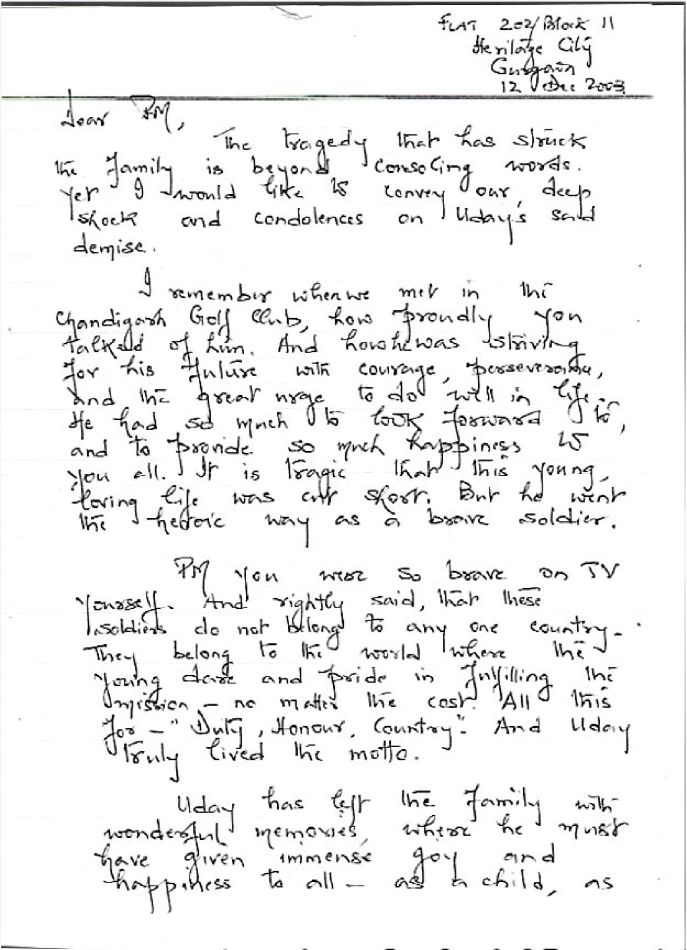 FLAT 202/Block 11
Heritage City
Gurgaon
12 Dec 2003
Dear PM,
The tragedy that has struck
the family is beyond consoling words.
Yet I would like to convey our, deep
shock and condolences on Uday's said
demise.
I remember when we met in the
Chandigarh Golf Club, how proudly you
talked of him. And how he was striving
for his future with courage, perseverance,
and the great urge to do well in life.
He had so much to look forward to,
and to provide so much happiness to
you all. It is tragic that this young,
loving life was cut short. But he went
the heroic way as a brave soldier.
PM you were so brave on TV
yourself. And rightly said, that these
soldiers do not belong to any one country.
They belong to the world where the
young dare and pride in fulfilling the
mission – no matter the cost. All this
for – "Duty, Honour, Country". And Uday
truly lived the motto.
Uday has left the family with
wonderful memories, where he must
have given immense joy and
happiness to all – as a child, as